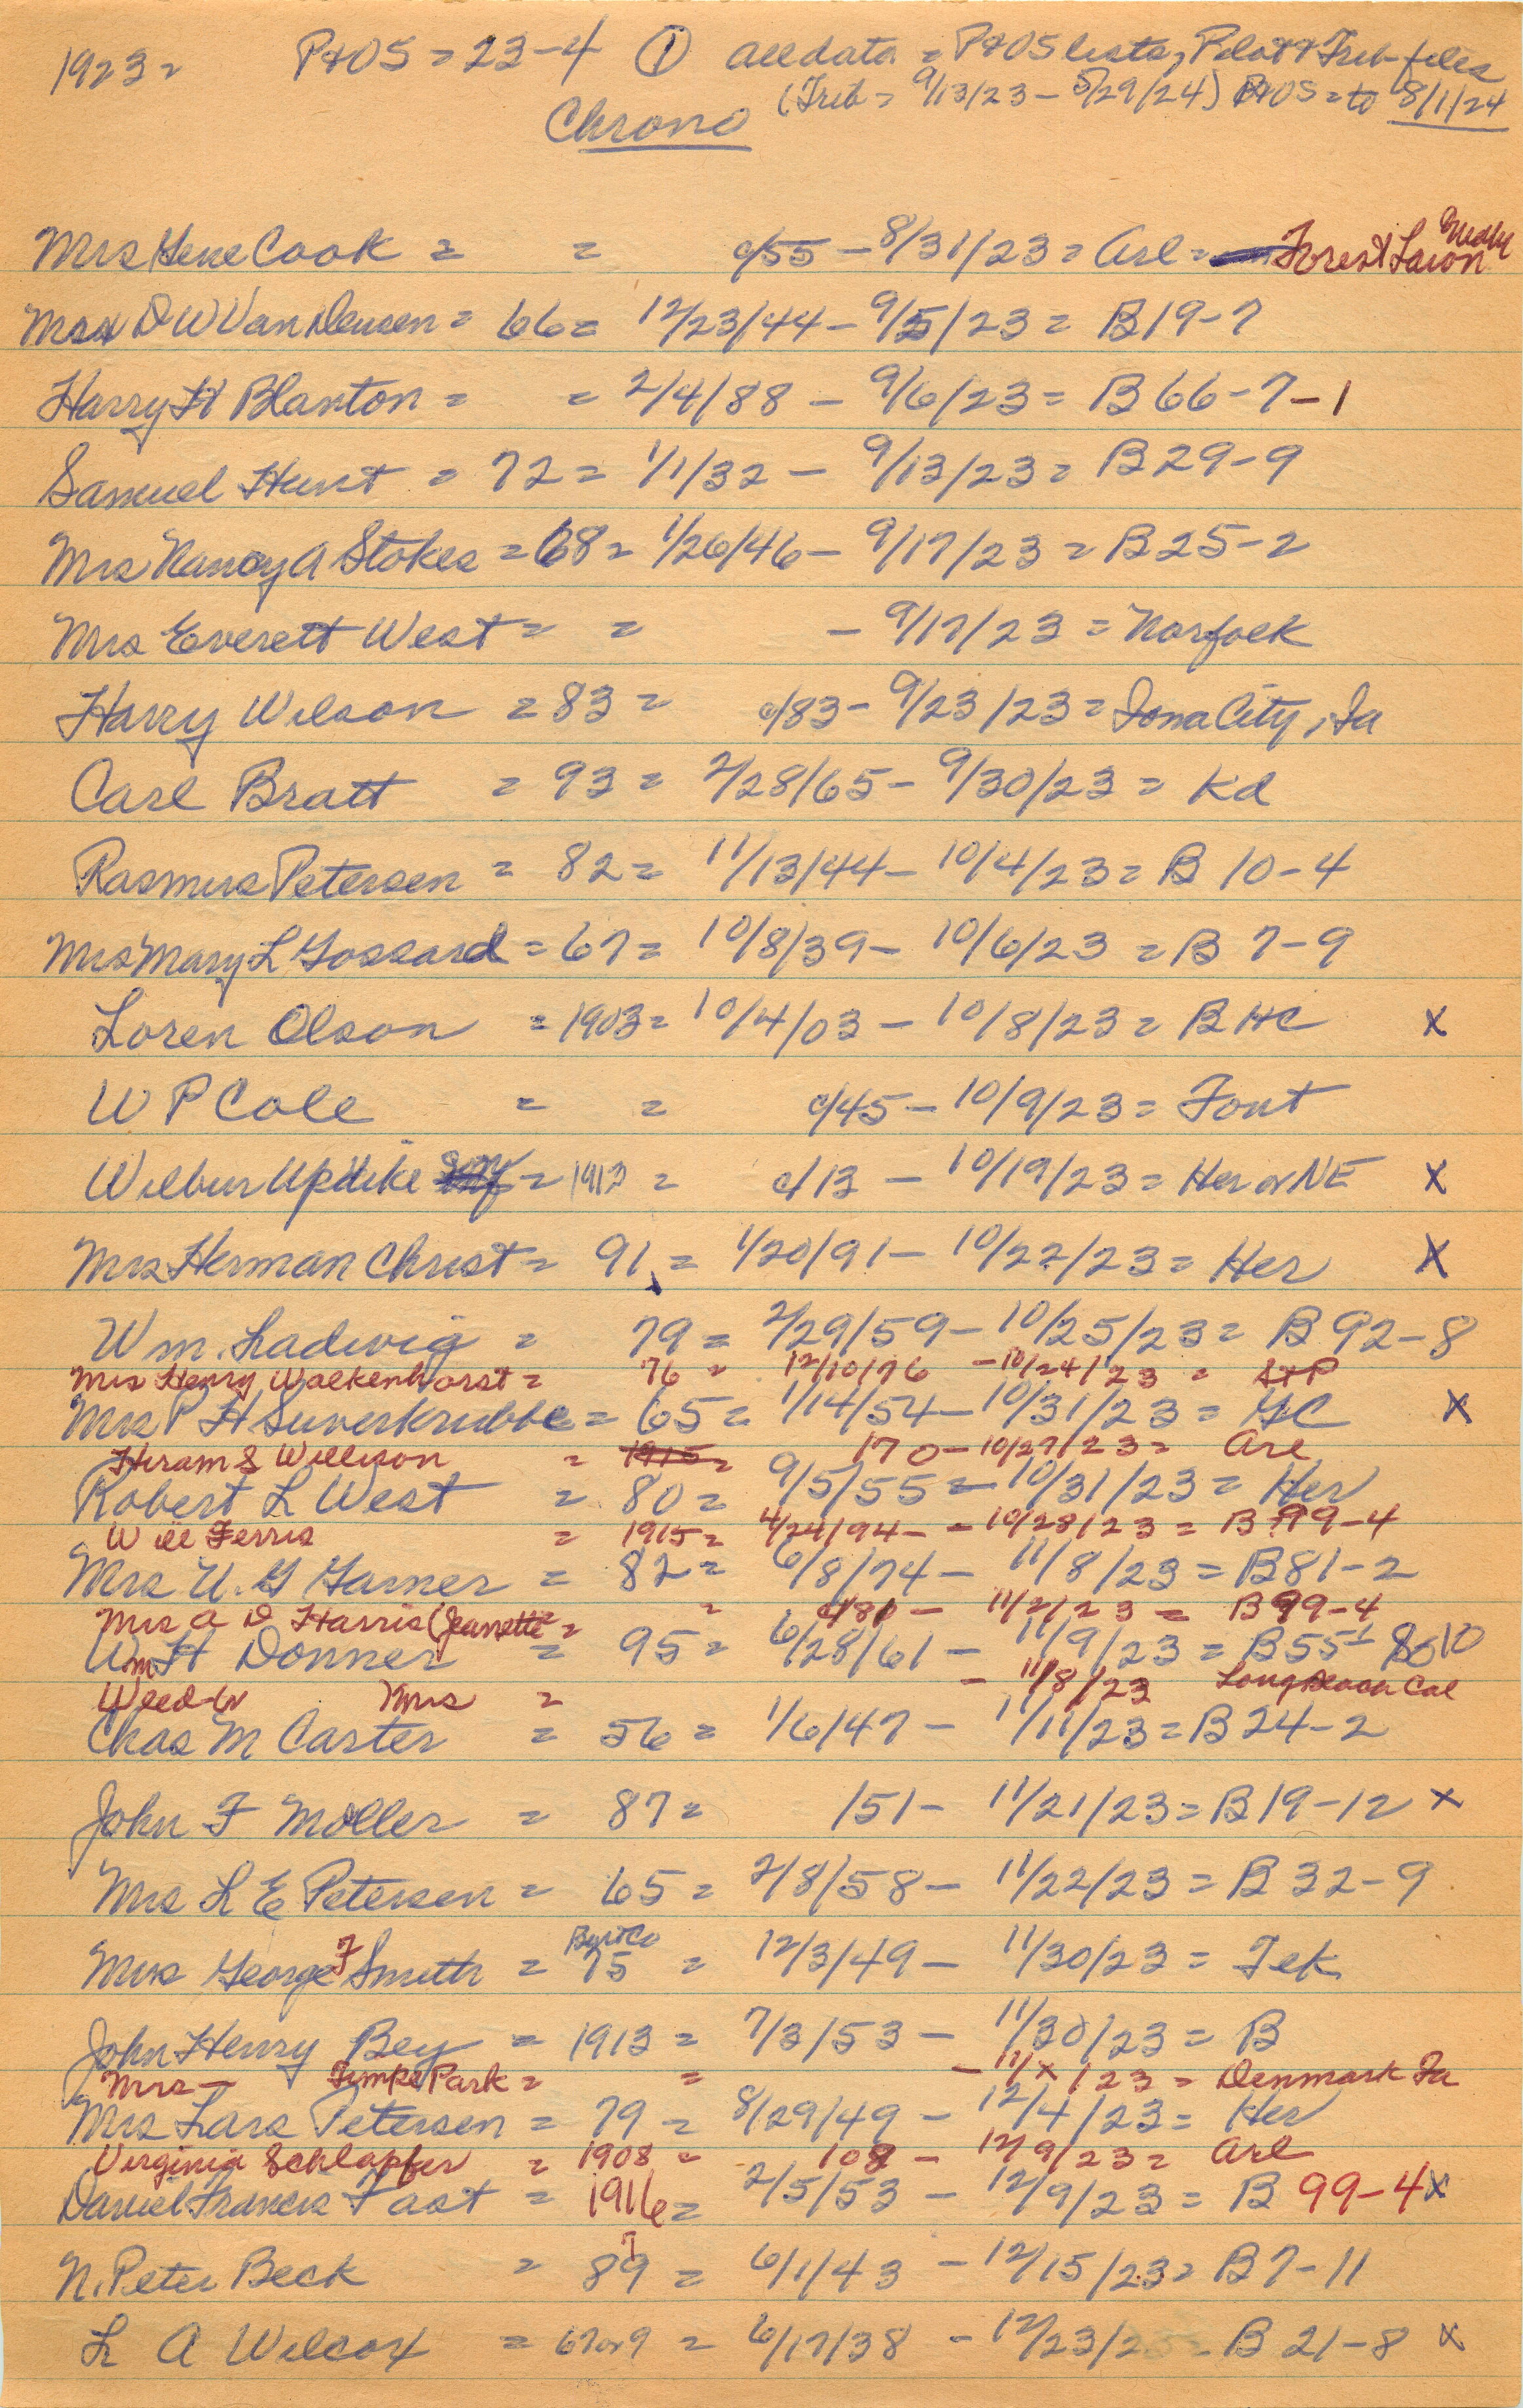 1923 = P+OS = 23-4 ① all data = P+OS lists, Pilot + Trib files
(Trib = 9/13/23 - 5/29/24) P+OS = to 8/1/24
Chrono
Mrs Gene Cook = = c/55 - 8/31/23 = Arl = Forest Lawn
Mrs D W Van Deusen = 66 = 12/23/44 - 9/5/23 = B 19-7
Harry H Blanton = = 2/4/88 - 9/6/23 = B 66-7-1
Samuel Hunt = 72 = 1/1/32 - 9/13/23 = B 29-9
Mrs Nancy A Stokes = 68 = 1/26/46 - 9/17/23 = B 25-2
Mrs Everett West = = - 9/17/23 = Norfolk
Harry Wilson = 83 = c/83 - 9/23/23 = Iowa City, Ia
Carl Bratt = 93 = 2/28/65 - 9/30/23 = Kd
Rasmus Petersen = 82 = 11/13/44 - 10/4/23 = B 10-4
Mrs Mary L Gossard = 67 = 10/8/39 - 10/6/23 = B 7-9
Loren Olson = 1903 = 10/4/03 - 10/8/23 = B HC x
W P Cole = = c/45 - 10/9/23 = Font
Wilbur Updike = 1913 = c/13 - 10/19/23 = Her or NE x
Mrs Herman Christ = 91 = 1/20/91 - 10/22/23 = Her X
Wm. Ladwig = 79 = 2/29/59 - 10/25/23 = B 92-8
Mrs Henry Walkenhorst = 76 = 12/10/76 - 10/24/23 = StP
Mrs P H Suverkrubbe = 65 = 1/14/54 - 10/31/23 = GC x
Hiram S Willison = 1915 = 170 - 10/27/23 = Arl
Robert L West = 80 = 9/5/55 - 10/31/23 = Her
Will Ferris = 1915 = 4/24/94 - - 10/28/23 = B 99-4
Mrs U. G Garner = 82 = 6/8/74 - 11/8/23 = B 81-2
Mrs A D Harris (Jeanette = = c/80 - 11/2/23 = B 99-4
Wm H Donner = 95 = 6/28/61 - 11/9/23 = B 55 - 8 or 10
Weed-W Mrs = - 11/8/23 Long Beach Cal
Chas M Carter = 56 = 1/6/47 - 11/11/23 = B 24-2
John F Moller = 87 = 151 - 11/21/23 = B 19-12 x
Mrs L E Petersen = 65 = 2/8/58 - 11/22/23 = B 32-9
Burt Co
Mrs George F Smith = 75 = 12/3/49 - 11/30/23 = Tek
John Henry Bey = 1913 = 7/3/53 - 11/30/23 = B
Mrs - Timpe Park = = - 11/x/23 = Denmark Ia
Mrs Lars Petersen = 79 = 8/29/49 - 12/4/23 = Her
Virginia Schlapfer = 1908 = 108 - 12/9/23 = Arl
Daniel Francis Fast = 1916 = 2/5/53 - 12/9/23 = B 99-4 x
7
N. Peter Beck = 89 = 6/1/43 - 12/15/23 = B 7-11
L A Wilcox = 67 or 9 = 6/17/38 - 12/23/23 = B 21-8 x